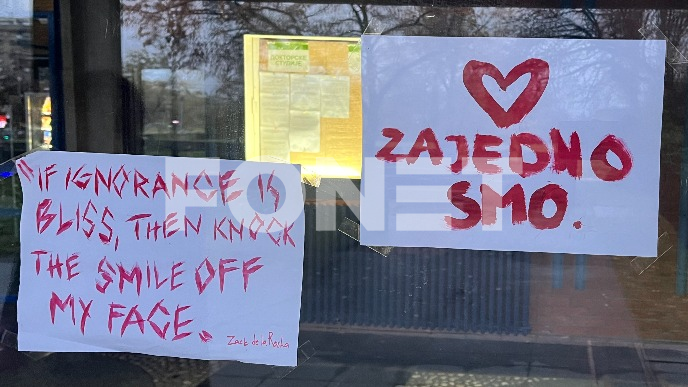 "IF IGNORANCE IS
BLISS, THEN KNOCK
THE SMILE OFF
MY FACE.
Zack de la Rocha
ДОКТОРСКЕ
СТУДИЈЕ
ZAJEDNO
SMO.
FONET